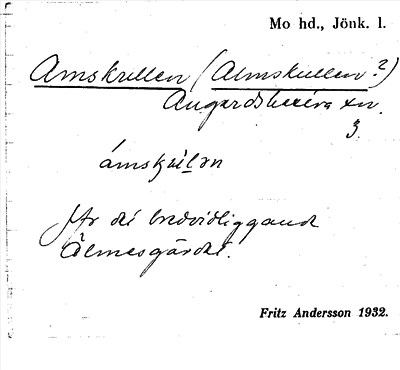 Mo hd., Jönk. l.
Amskullen (Almskullen?)
Angerdshestra sn.
3
ámskúlən
Jfr det bredvidliggand
Älmesgärdet.
Fritz Andersson 1932.